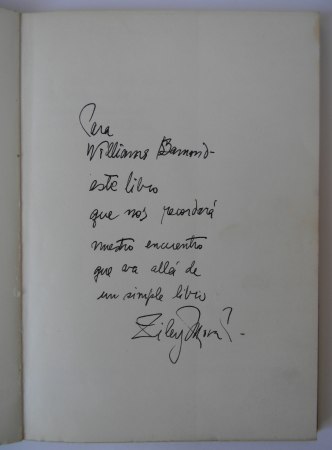 Para
Williams Bamond-
este libro
que nos recordará
nuestro encuentro
que va allá de
un simple libro
Ziley Mora